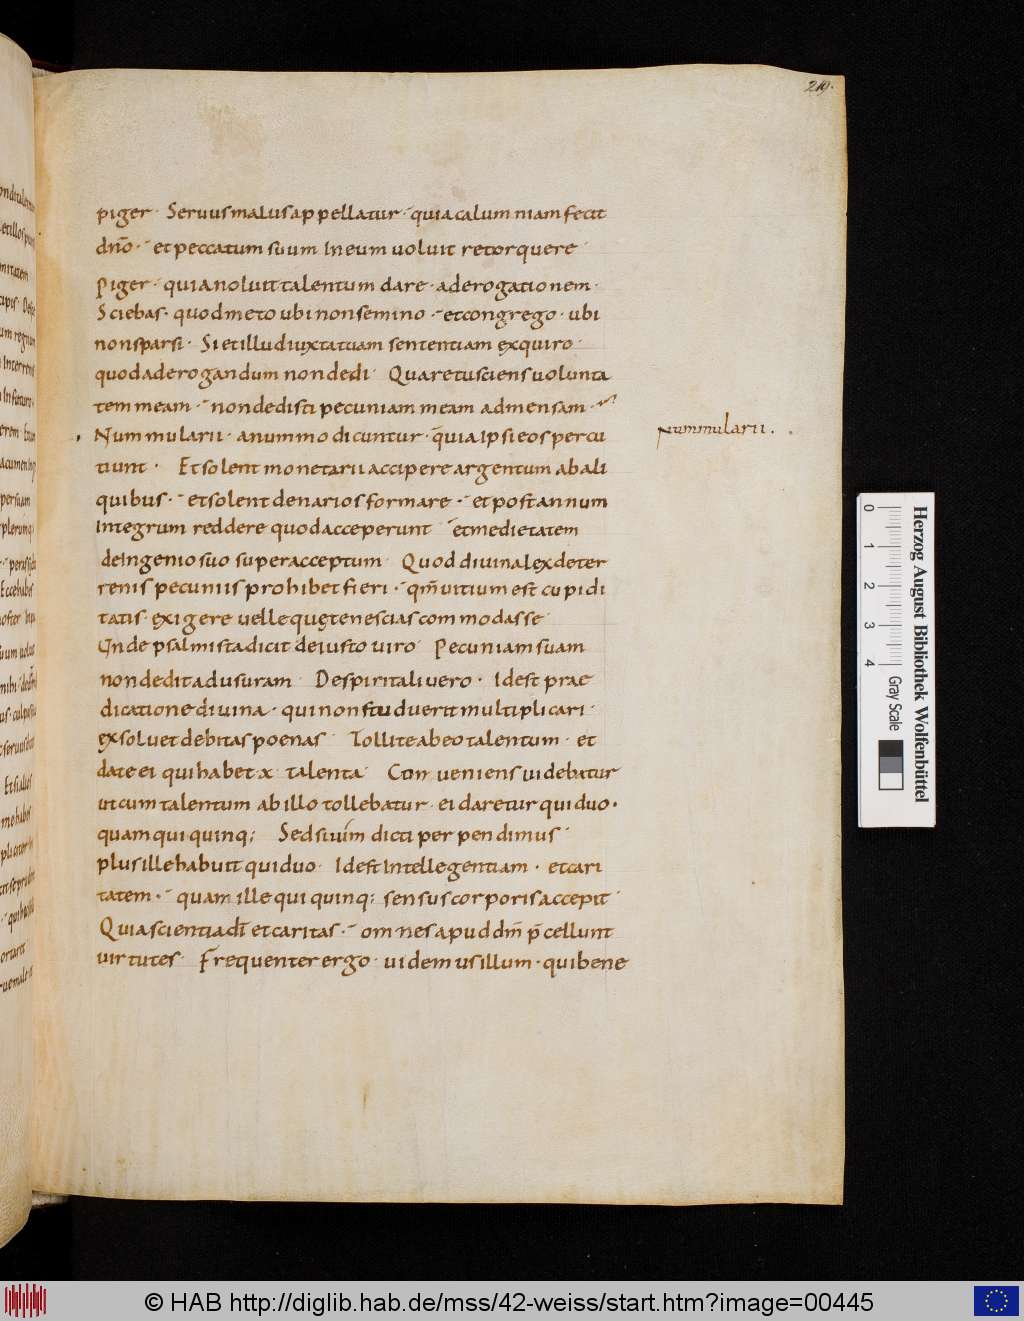 219.
piger · Seruus malus appellatur · quia calumniam fecit
dno · et peccatum suum In eum uoluit retorquere
Piger · quia noluit talentum dare · ad erogationem ·
Sciebas · quod meto ubi non semino · et congrego · ubi
non sparsi · Si et illud iuxta tuam sententiam exquiro ·
quod ad erogandum non dedi · Quare tu sciens uolunta
tem meam · non dedisti pecuniam meam ad mensam ·
Nummularii · a nummo dicuntur · qia Ipsi eos percu
tiunt · Et solent monetarii accipere argentum ab ali
quibus · et solent denarios formare · et post annum
Integrum reddere quod acceperunt et medietatem
de Ingenio suo superacceptum · Quod diuina lex de ter
renis pecuniis prohibet fieri · qm uitium est cupidi
tatis exigere uelle quę te nescias commodasse
Unde psalmista dicit de iusto uiro Pecuniam suam
non dedit ad usuram Despiritali uero · Idest prae
dicatione diuina · qui non studuerit multiplicari ·
exsoluet debitas poenas Tollite ab eo talentum · et
date ei qui habet x talenta Conueniens uidebatur
ut cum talentum ab illo tollebatur · ei daretur qui duo ·
quam qui quinq; Sed si uim dicti perpendimus
plus ille habuit qui duo · Idest Intellegentiam · et cari
tatem · quam ille qui quinq; sensus corporis accepit
Quia scientia di et caritas · omnes apud dm pcellunt
uirtutes Frequenter ergo · uidemus illum · qui bene
nummularii .
Herzog August Bibliothek Wolfenbüttel
0 1 2 3 4 Gray Scale
© HAB http://diglib.hab.de/mss/42-weiss/start.htm?image=00445